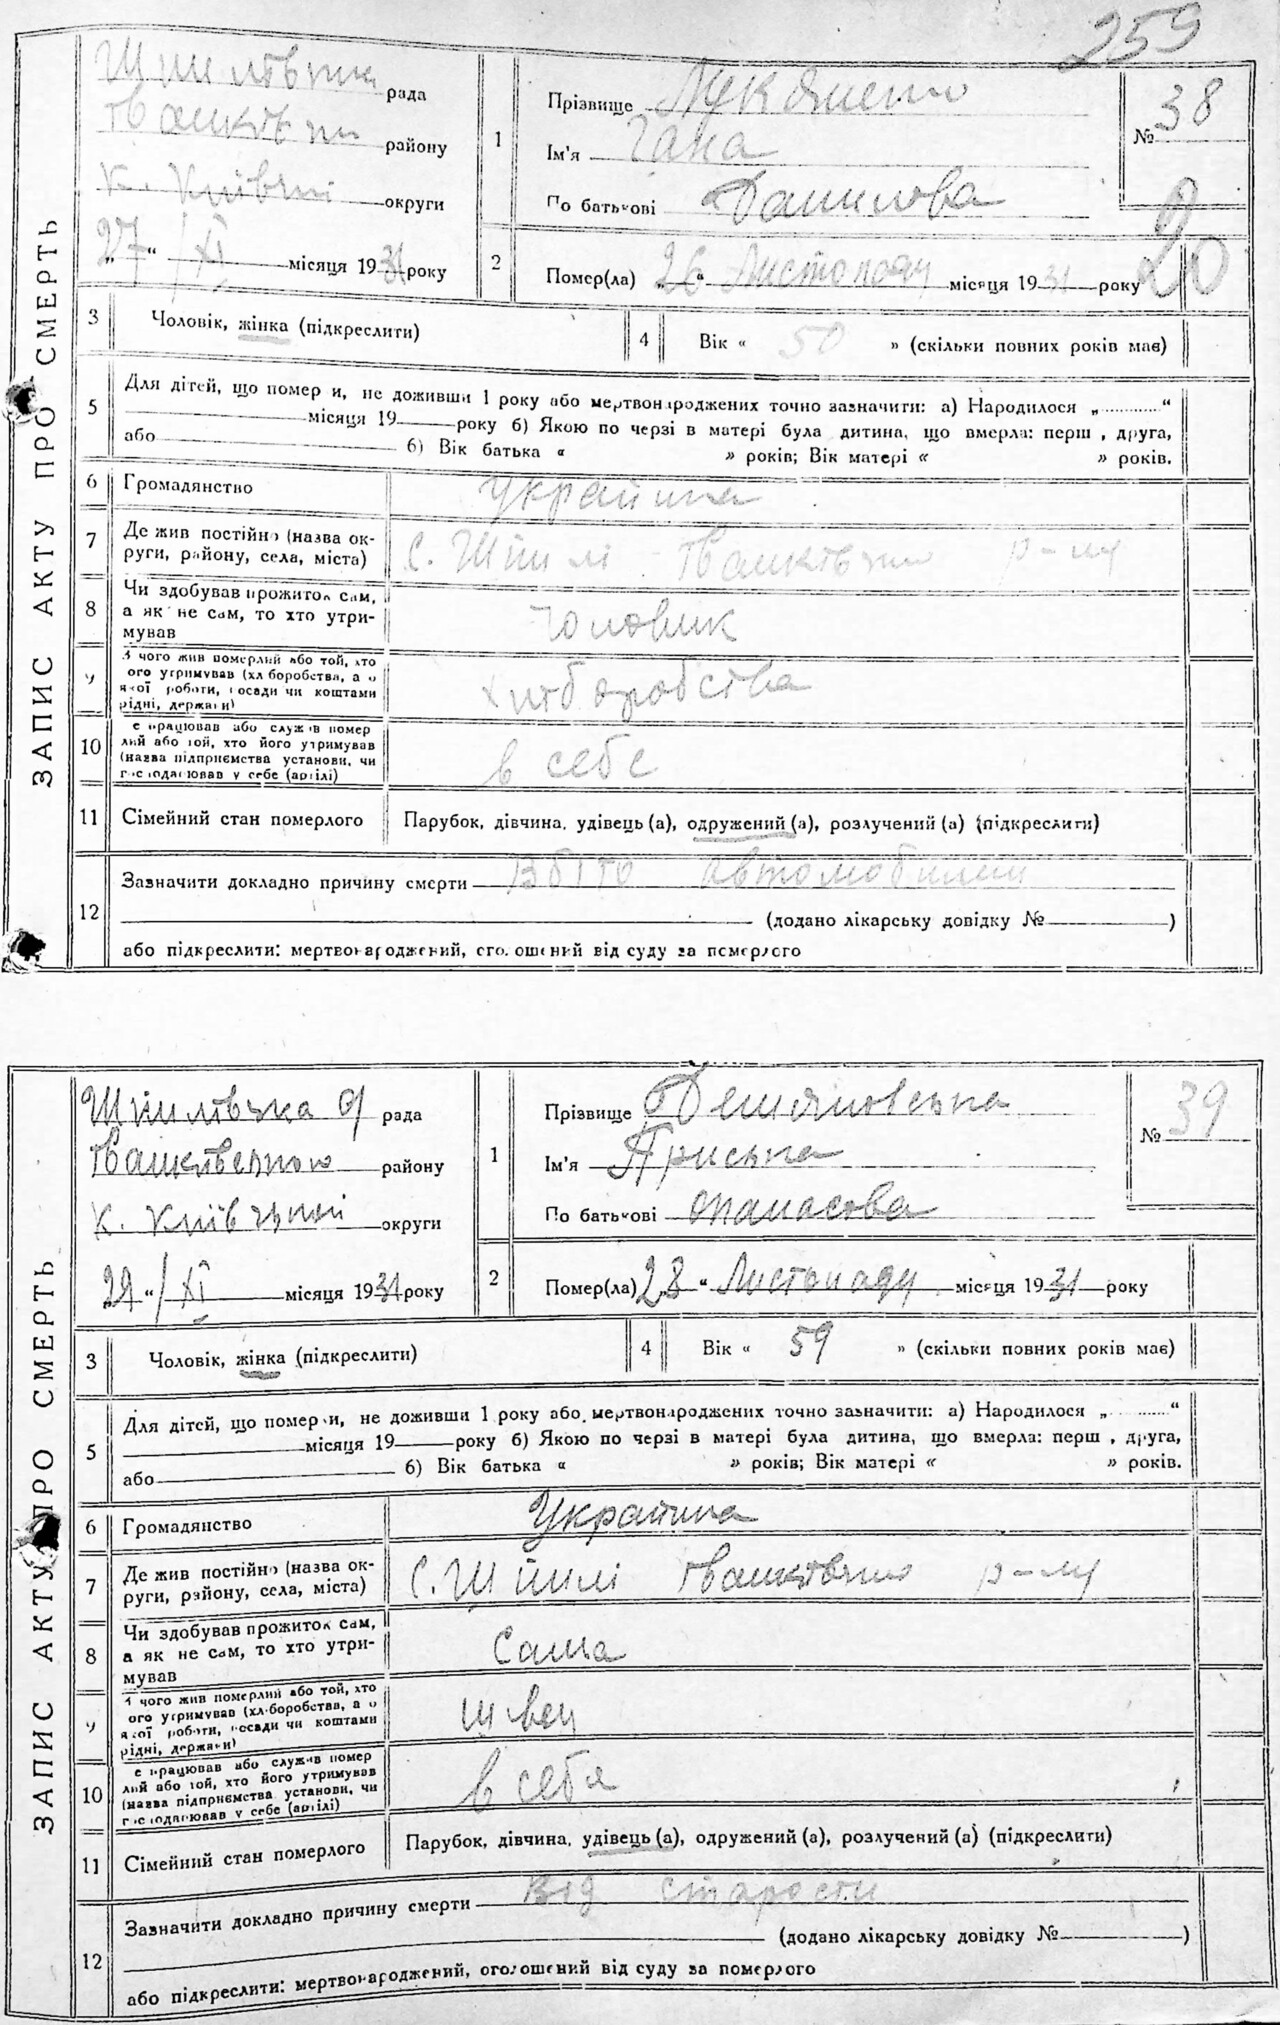 259
ЗАПИС АКТУ ПРО СМЕРТЬ
рада
району
К. округи
"27" /XI місяця 1931 року
1
Прізвище
Ім'я Гана
По батькові Данилова
№ 38
20
2
Помер(ла) "26" Листопаду місяця 1931 року
3
Чоловік, жінка (підкреслити)
4
Вік « 50 » (скільки повних років має)
5
Для дітей, що померли, не доживши 1 року або мертвонароджених точно зазначити: а) Народилося „............“
місяця 19 року б) Якою по черзі в матері була дитина, що вмерла: перш , друга,
або б) Вік батька « » років; Вік матері « » років.
6
Громадянство
Украйинка
7
Де жив постійно (назва ок-
руги, району, села, міста)
С. Шпилі р-ну
8
Чи здобував прожиток сам,
а як не сам, то хто утри-
мував
чоловик
9
З чого жив померлий або той, хто
ого утримував (хліборобства, а о
якої роботи, посади чи коштами
рідні, держави)
хліборобства
10
е працював або служив помер
лий або той, хто його утримував
(назва підприємства установи, чи
господарював у себе (артілі)
в себе
11
Сімейний стан померлого
Парубок, дівчина, удівець (а), одружений (а), розлучений (а) (підкреслити)
12
Зазначити докладно причину смерти Вбіто автомобилем
(додано лікарську довідку № )
або підкреслити: мертвонароджений, оголошений від суду за померлого
ЗАПИС АКТУ ПРО СМЕРТЬ
рада
району
К. округи
"29" /XI місяця 1931 року
1
Прізвище
Ім'я Приська
По батькові опанасова
№ 39
2
Помер(ла) "28" Листопаду місяця 1931 року
3
Чоловік, жінка (підкреслити)
4
Вік « 59 » (скільки повних років має)
5
Для дітей, що померли, не доживши 1 року або мертвонароджених точно зазначити: а) Народилося „............“
місяця 19 року б) Якою по черзі в матері була дитина, що вмерла: перш , друга,
або б) Вік батька « » років; Вік матері « » років.
6
Громадянство
Украйинка
7
Де жив постійно (назва ок-
руги, району, села, міста)
С. Шпилі р-ну
8
Чи здобував прожиток сам,
а як не сам, то хто утри-
мував
Сама
9
З чого жив померлий або той, хто
ого утримував (хліборобства, а о
якої роботи, посади чи коштами
рідні, держави)
швец
10
е працював або служив помер
лий або той, хто його утримував
(назва підприємства установи, чи
господарював у себе (артілі)
в себя
11
Сімейний стан померлого
Парубок, дівчина, удівець (а), одружений (а), розлучений (а) (підкреслити)
12
Зазначити докладно причину смерти Від старости
(додано лікарську довідку № )
або підкреслити: мертвонароджений, оголошений від суду за померлого